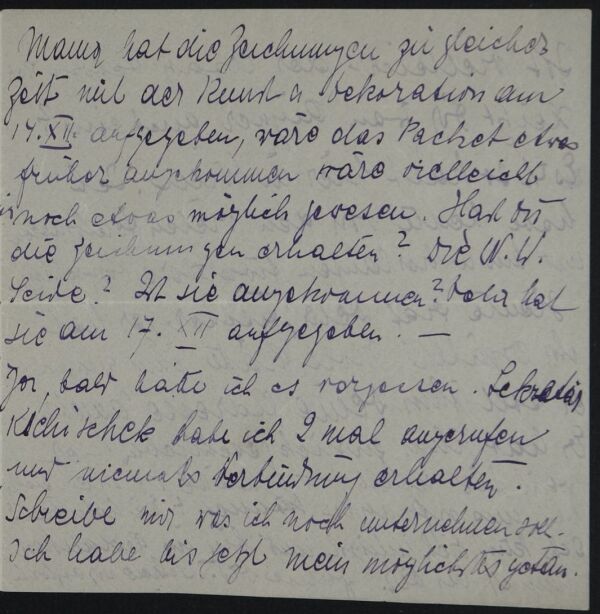 Mama hat die Zeichnungen zu gleicher
Zeit mit der Kunst u Dekoration am
17. XII. aufgegeben, wäre das Packet etwas
früher angekommen wäre vielleicht
noch etwas möglich gewesen. Hast du
die Zeichnungen erhalten? Die W. W.
Seide? Ist sie angekommen? hat
sie am 17. XII aufgegeben. —
Ja, bald hätte ich es vergessen. Sekretär
habe ich 2 mal angerufen
und niemals Verbindung erhalten.
Schreibe mir was ich noch unternehmen soll.
Ich habe bis jetzt mein möglichstes getan.